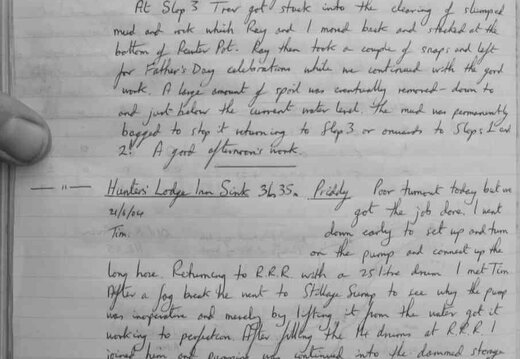 At Slop 3 Trev got stuck into the clearing of slumped
mud and rock which Ray and I moved back and stacked at the
bottom of Pewter Pot. Ray then took a couple of snaps and left
for Father's Day celebrations while we continued with the good
work. A large amount of spoil was eventually removed - down to
and just below the current water level. The mud was permanently
bagged to stop it returning to Slop 3 or onwards to Slops 1 and
2! A good afternoon's work.
— " — Hunters' Lodge Inn Sink 3h 35m Priddy Poor turnout today but we
21/6/04 got the job done. I went
Tim. down early to set up and turn
on the pump and connect up the
long hose. Returning to R.R.R. with a 25 litre drum I met Tim
After a fag break we went to Stillage Sump to see why the pump
was inoperative and merely by lifting it from the water got it
working to perfection. After filling the 14 drums at R.R.R. I
joined him and pumping was continued into the dammed storage